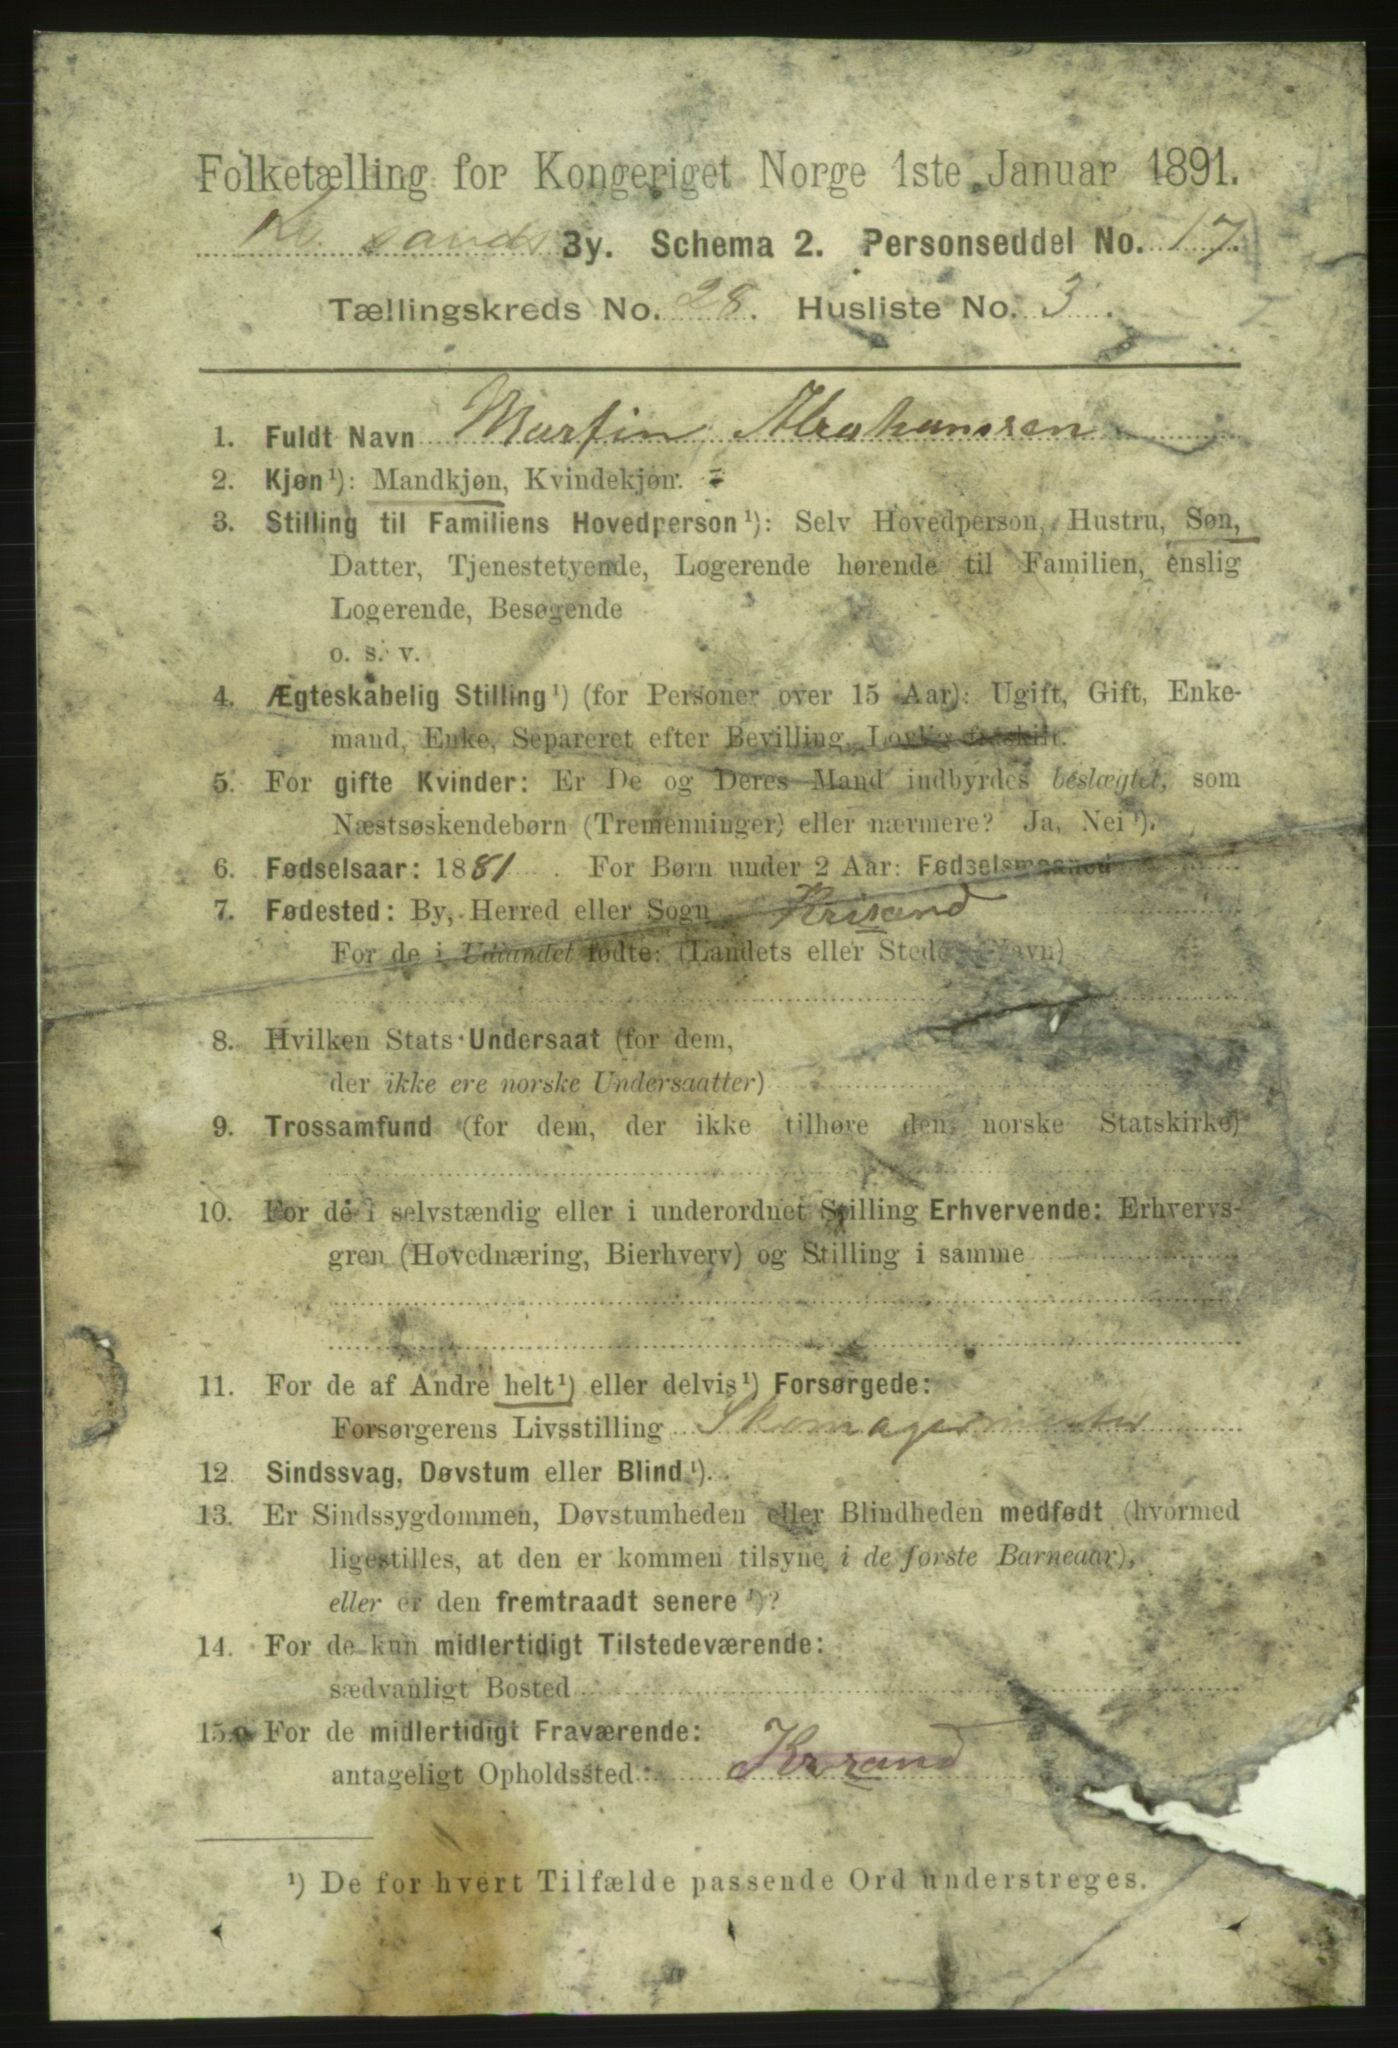 Folketælling for Kongeriget Norge 1ste Januar 1891.
Kr. sands By. Schema 2. Personseddel No. 17.
Tællingskreds No. 28. Husliste No. 3.
1. Fuldt Navn Martin Abrahamsen
2. Kjøn¹): Mandkjøn, Kvindekjøn.
3. Stilling til Familiens Hovedperson¹): Selv Hovedperson, Hustru, Søn,
Datter, Tjenestetyende, Logerende hørende til Familien, enslig
Logerende, Besøgende
o. s. v.
4. Ægteskabelig Stilling¹) (for Personer over 15 Aar): Ugift, Gift, Enke-
mand, Enke, Separeret efter Bevilling, Lovlig fraskilt.
5. For gifte Kvinder: Er De og Deres Mand indbyrdes beslægtet, som
Næstsøskendebørn (Tremenninger) eller nærmere? Ja, Nei¹).
6. Fødselsaar: 1881. For Børn under 2 Aar: Fødselsmaaned
7. Fødested: By, Herred eller Sogn Krisand
For de i Udlandet fødte: (Landets eller Stedets Navn)
8. Hvilken Stats Undersaat (for dem,
der ikke ere norske Undersaatter)
9. Trossamfund (for dem, der ikke tilhøre den norske Statskirke)
10. For de i selvstændig eller i underordnet Stilling Erhvervende: Erhvervs-
gren (Hovednæring, Bierhverv) og Stilling i samme
11. For de af Andre helt¹) eller delvis¹) Forsørgede:
Forsørgerens Livsstilling Skomagermester
12. Sindssvag, Døvstum eller Blind¹).
13. Er Sindssygdommen, Døvstumheden eller Blindheden medfødt (hvormed
ligestilles, at den er kommen tilsyne i de første Barneaar),
eller er den fremtraadt senere¹)?
14. For de kun midlertidigt Tilstedeværende:
sædvanligt Bosted
15. For de midlertidigt Fraværende:
antageligt Opholdssted Krsand
¹) De for hvert Tilfælde passende Ord understreges.